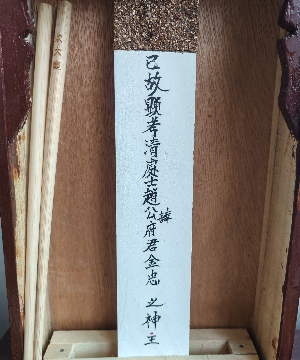 已故顯考清處士趙公諱府君金忠之神主